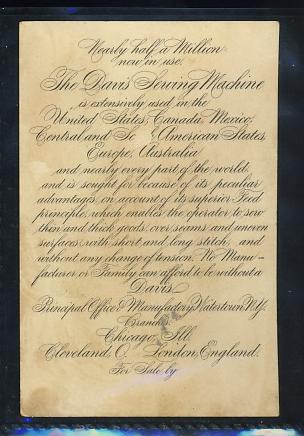 Nearly half a Million
now in use.
The Davis Sewing Machine
is extensively used in the
United States, Canada, Mexico,
Central and So American States,
Europe, Australia
and nearly every part of the world,
and is sought for because of its peculiar
advantages, on account of its superior Feed
principle, which enables the operator to sew
thin and thick goods, over seams and uneven
surfaces, with short and long stitch, and
without any change of tension. No Manu-
facturer or Family can afford to be without a
Davis.
Principal Office & Manufactory, Watertown, N.Y.
Branches
Chicago, Ill.
Cleveland, O. London, England.
For Sale by